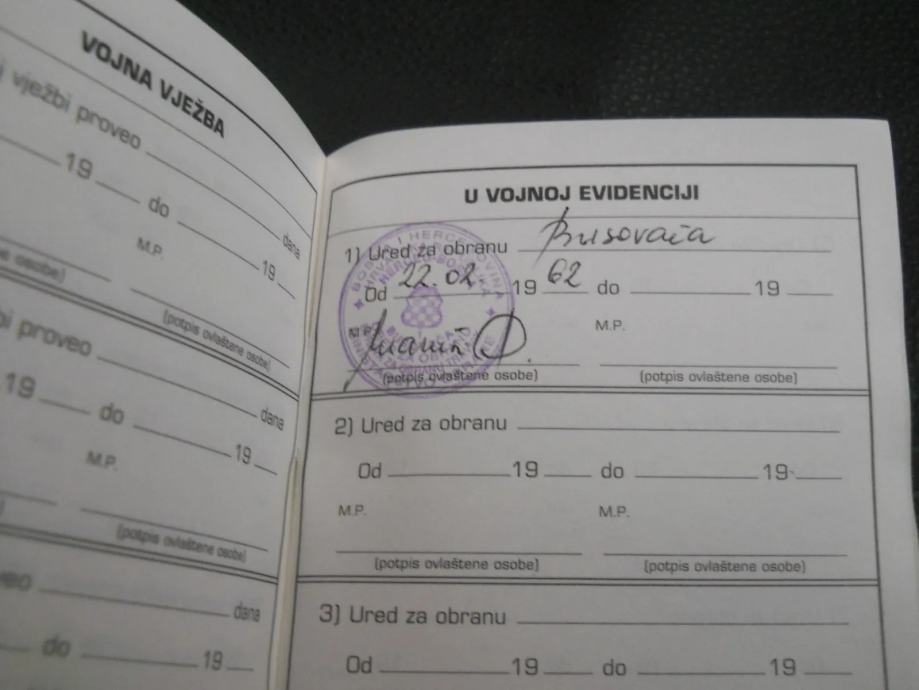 VOJNA VJEŽBA
vježbi proveo
19 do dana
M.P. 19
(potpis ovlaštene osobe)
proveo
19 do dana
M.P. 19
(potpis ovlaštene osobe)
dana
do 19
U VOJNOJ EVIDENCIJI
1) Ured za obranu Busovača
Od 22.02 19 62 do 19
M.P. M.P.
(potpis ovlaštene osobe) (potpis ovlaštene osobe)
BOSNA I HERCEGOVINA
HERCEG-BOSNA
2) Ured za obranu
Od 19 do 19
M.P. M.P.
(potpis ovlaštene osobe) (potpis ovlaštene osobe)
3) Ured za obranu
Od 19 do 19